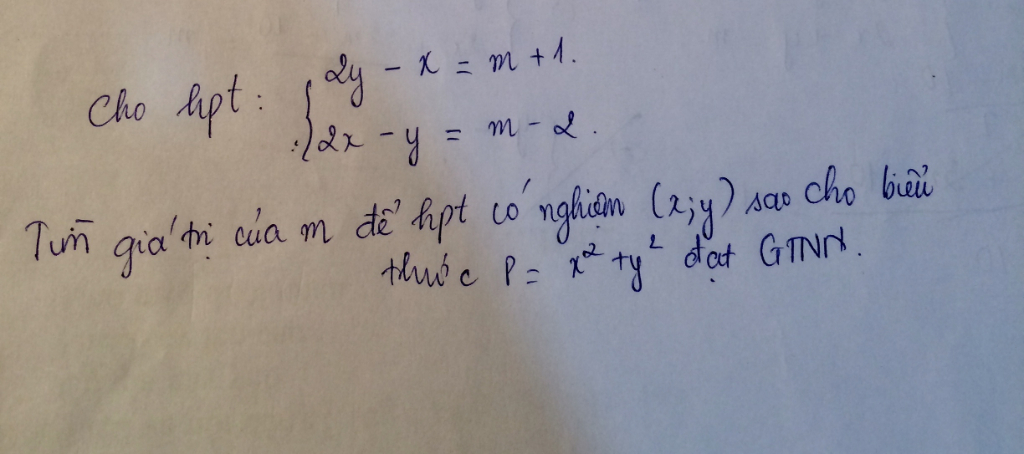 Cho hpt: { 2y - x = m + 1.
2x - y = m - 2.
Tìm giá trị của m để hpt có nghiệm (x;y) sao cho biểu
thức P = x² + y² đạt GTNN.